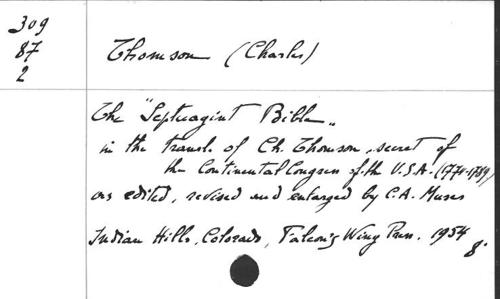 309
87
2
Thomson (Charles)
The "Septuagint Bible"
in the transl. of Ch. Thomson, secret of
the Continental Congress of the U.S.A. (1774-1789)
as edited, revised and enlarged by C.A. Muses
Indian Hills, Colorado, Falcon's Wing Press. 1954
8°